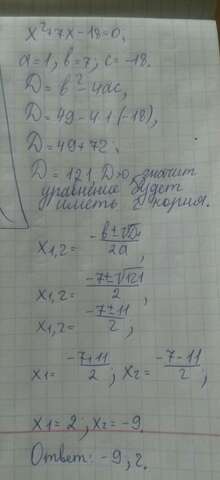 x²+7x-18=0,
a=1, в=7; c=-18.
D=в²-4ac,
D=49-4·1·(-18),
D=49+72.
D=121, D>0, значит
уравнение будет
иметь 2 корня.
x1,2= -в±√D / 2a,
x1,2= -7±√121 / 2,
x1,2= -7±11 / 2,
x1= -7+11 / 2; x2= -7-11 / 2;
x1=2; x2=-9.
Ответ: -9; 2.